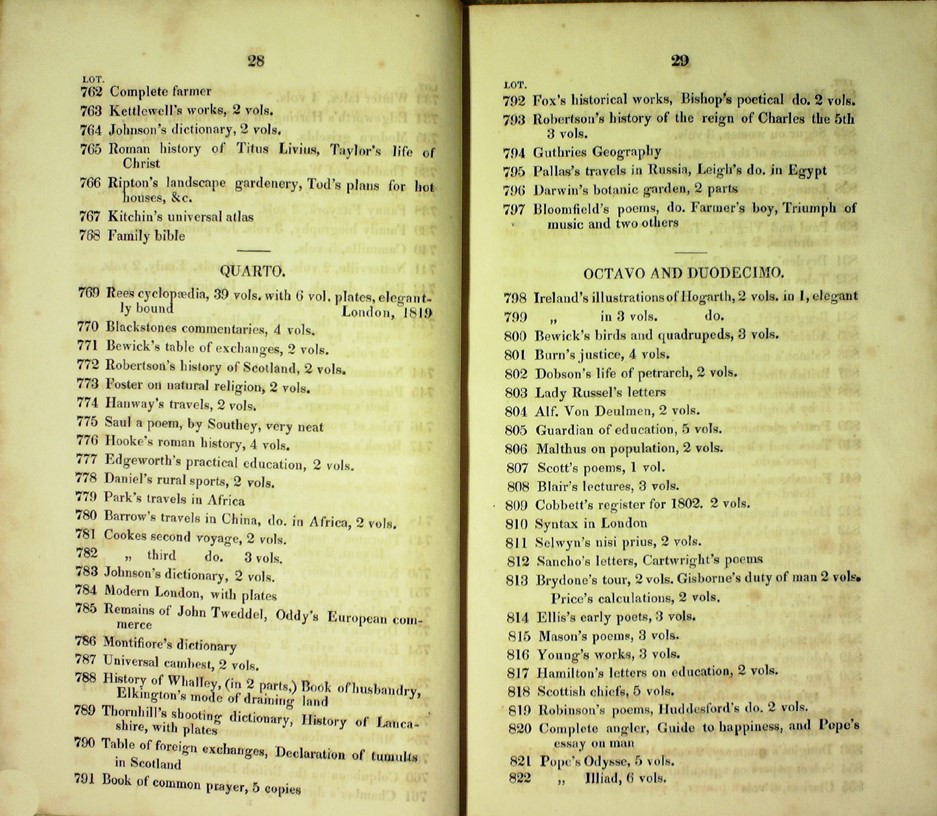 28
LOT.
762 Complete farmer
763 Kettlewell's works, 2 vols.
764 Johnson's dictionary, 2 vols.
765 Roman history of Titus Livius, Taylor's life of
Christ
766 Ripton's landscape gardenery, Tod's plans for hot
houses, &c.
767 Kitchin's universal atlas
768 Family bible
QUARTO.
769 Rees cyclopædia, 39 vols. with 6 vol. plates, elegant-
ly bound London, 1819
770 Blackstones commentaries, 4 vols.
771 Bewick's table of exchanges, 2 vols.
772 Robertson's history of Scotland, 2 vols.
773 Foster on natural religion, 2 vols.
774 Hanway's travels, 2 vols.
775 Saul a poem, by Southey, very neat
776 Hooke's roman history, 4 vols.
777 Edgeworth's practical education, 2 vols.
778 Daniel's rural sports, 2 vols.
779 Park's travels in Africa
780 Barrow's travels in China, do. in Africa, 2 vols.
781 Cookes second voyage, 2 vols.
782 „ third do. 3 vols.
783 Johnson's dictionary, 2 vols.
784 Modern London, with plates
785 Remains of John Tweddel, Oddy's European com-
merce
786 Montifiore's dictionary
787 Universal cambest, 2 vols.
788 History of Whalley, (in 2 parts,) Book of husbandry,
Elkington's mode of draining land
789 Thornhill's shooting dictionary, History of Lanca-
shire, with plates
790 Table of foreign exchanges, Declaration of tumults
in Scotland
791 Book of common prayer, 5 copies
29
LOT.
792 Fox's historical works, Bishop's poetical do. 2 vols.
793 Robertson's history of the reign of Charles the 5th
3 vols.
794 Guthries Geography
795 Pallas's travels in Russia, Leigh's do. in Egypt
796 Darwin's botanic garden, 2 parts
797 Bloomfield's poems, do. Farmer's boy, Triumph of
music and two others
OCTAVO AND DUODECIMO.
798 Ireland's illustrations of Hogarth, 2 vols. in 1, elegant
799 „ in 3 vols. do.
800 Bewick's birds and quadrupeds, 3 vols.
801 Burn's justice, 4 vols.
802 Dobson's life of petrarch, 2 vols.
803 Lady Russel's letters
804 Alf. Von Deulmen, 2 vols.
805 Guardian of education, 5 vols.
806 Malthus on population, 2 vols.
807 Scott's poems, 1 vol.
808 Blair's lectures, 3 vols.
809 Cobbett's register for 1802. 2 vols.
810 Syntax in London
811 Selwyn's nisi prius, 2 vols.
812 Sancho's letters, Cartwright's poems
813 Brydone's tour, 2 vols. Gisborne's duty of man 2 vols.
Price's calculations, 2 vols.
814 Ellis's early poets, 3 vols.
815 Mason's poems, 3 vols.
816 Young's works, 3 vols.
817 Hamilton's letters on education, 2 vols.
818 Scottish chiefs, 5 vols.
819 Robinson's poems, Huddesford's do. 2 vols.
820 Complete angler, Guide to happiness, and Pope's
essay on man
821 Pope's Odysse, 5 vols.
822 „ Illiad, 6 vols.